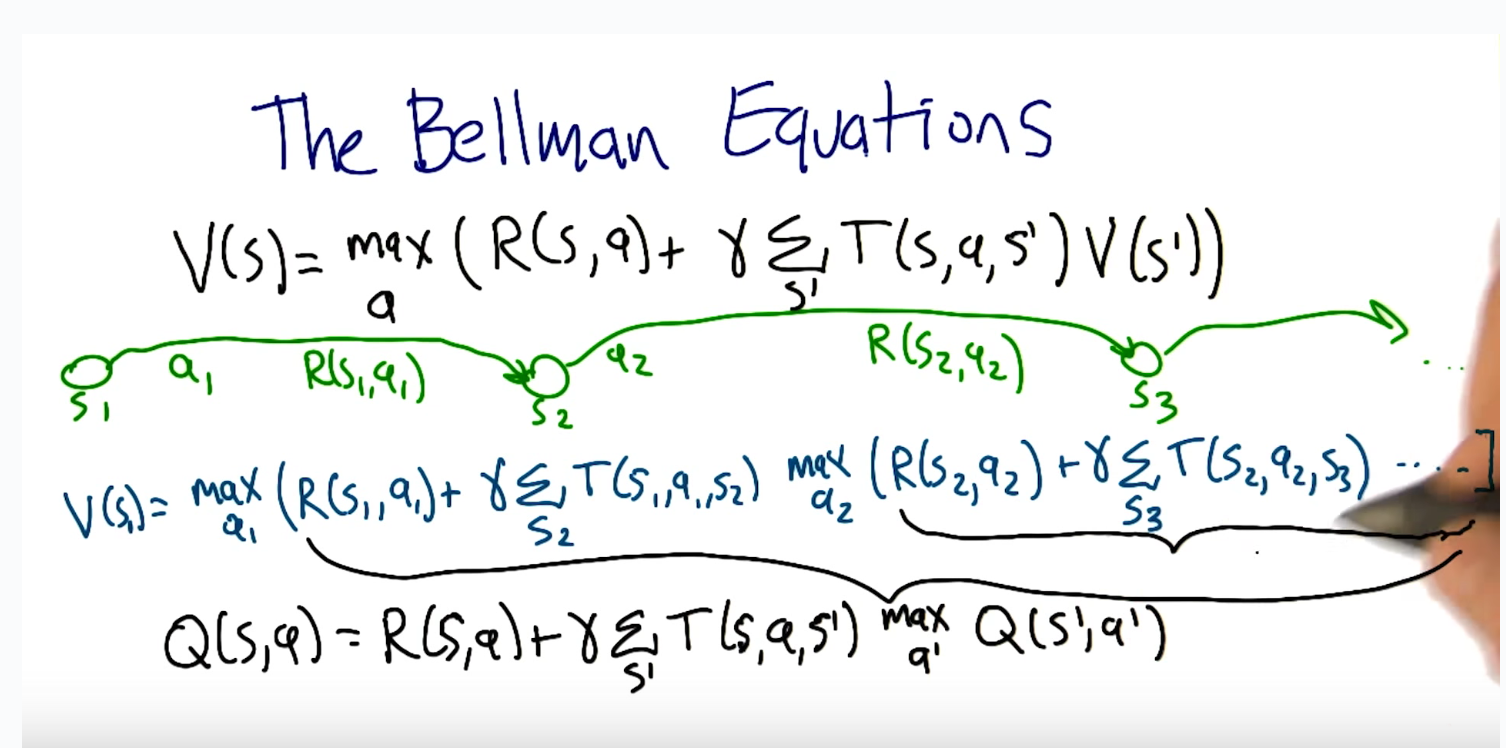 The Bellman Equations
V(s)= max_a (R(s,a)+ γ Σ_s' T(s,a,s')V(s'))
s1 a1 R(s1,a1) s2 a2 R(s2,a2) s3 ....
V(s1)= max_a1 (R(s1,a1)+ γ Σ_s2 T(s1,a1,s2) max_a2 (R(s2,a2)+γ Σ_s3 T(s2,a2,s3) ....]
Q(s,a)=R(s,a)+γ Σ_s' T(s,a,s') max_a' Q(s',a')